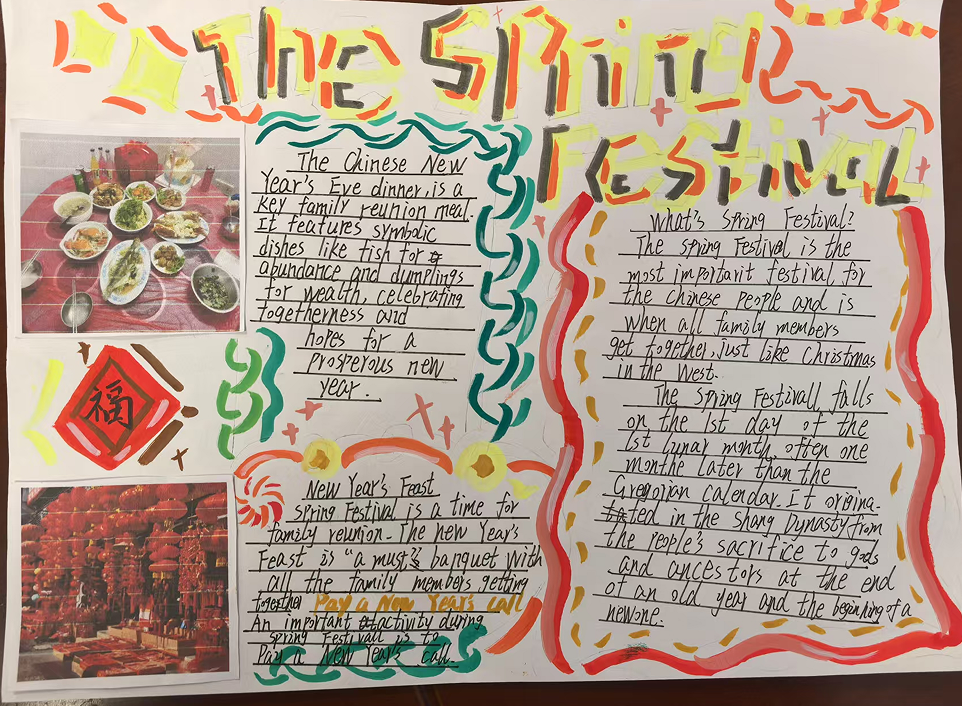 The Spring
Festival
The Chinese New
Year's Eve dinner, is a
key family reunion meal.
It features symbolic
dishes like fish for
abundance and dumplings
for wealth, celebrating
togetherness and
hopes for a
prosperous new
year.
福
New Year's Feast
Spring Festival is a time for
family reunion. The new Year's
Feast is "a must" banquet with
all the family members getting
together Pay a New Year's call
An important activity during
Spring Festivall is to
Pay a New Year's call.
What's Spring Festival?
The Spring Festival is the
most importarit festival for
the Chinese people and is
when all family members
get together, just like Christmas
in the West.
The Spring Festivall falls
on the 1st day of the
1st lunar month, often one
monthe later than the
Gregojian calendar. It origina-
ted in the Shang Dynasty from
the people's sacrifice to gods
and ancestors at the end
of an old year and the beginning of a
newone.